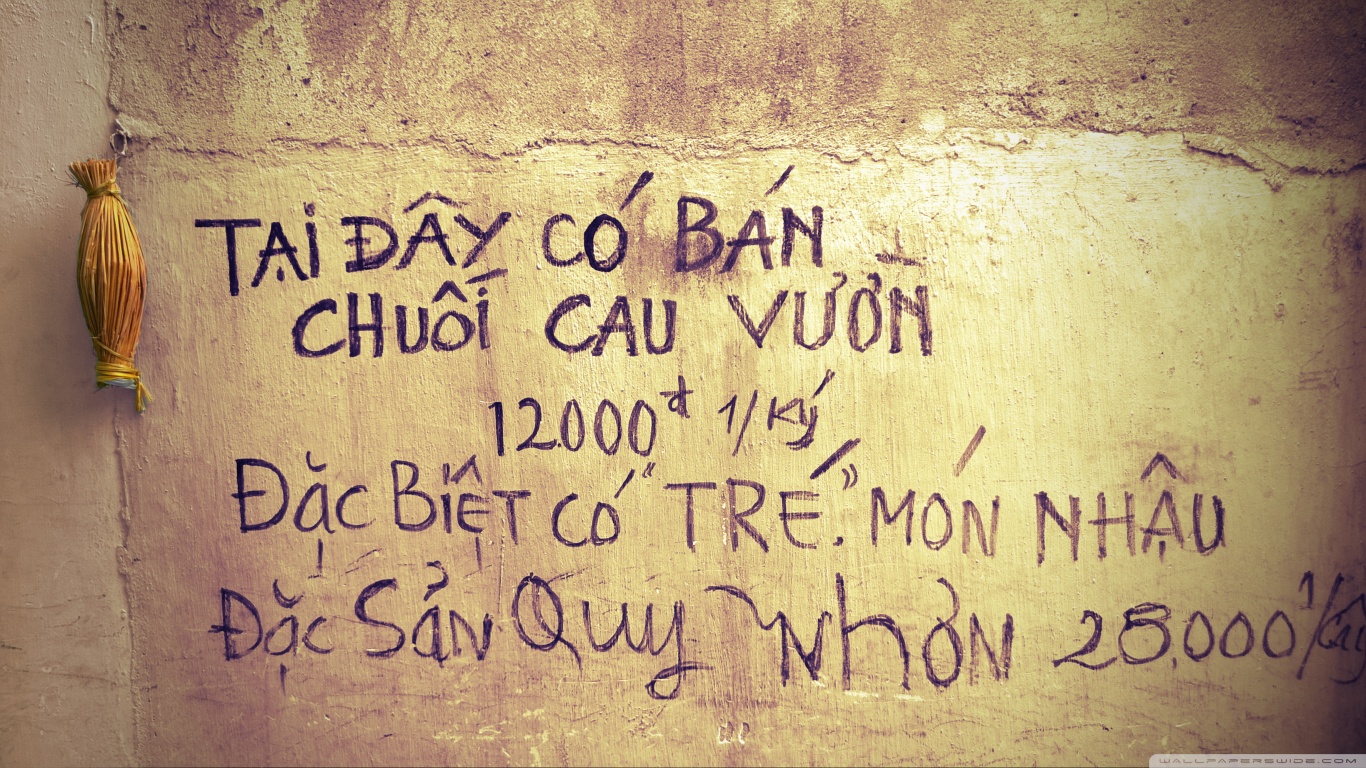 TẠI ĐÂY CÓ BÁN
CHUỐI CAU VƯỜN
12.000đ 1/Ký
ĐẶC BIỆT CÓ "TRÉ." MÓN NHẬU
ĐặC SẢN QUY NHƠN 25.000 1/Cây
WALLPAPERSWIDE.COM